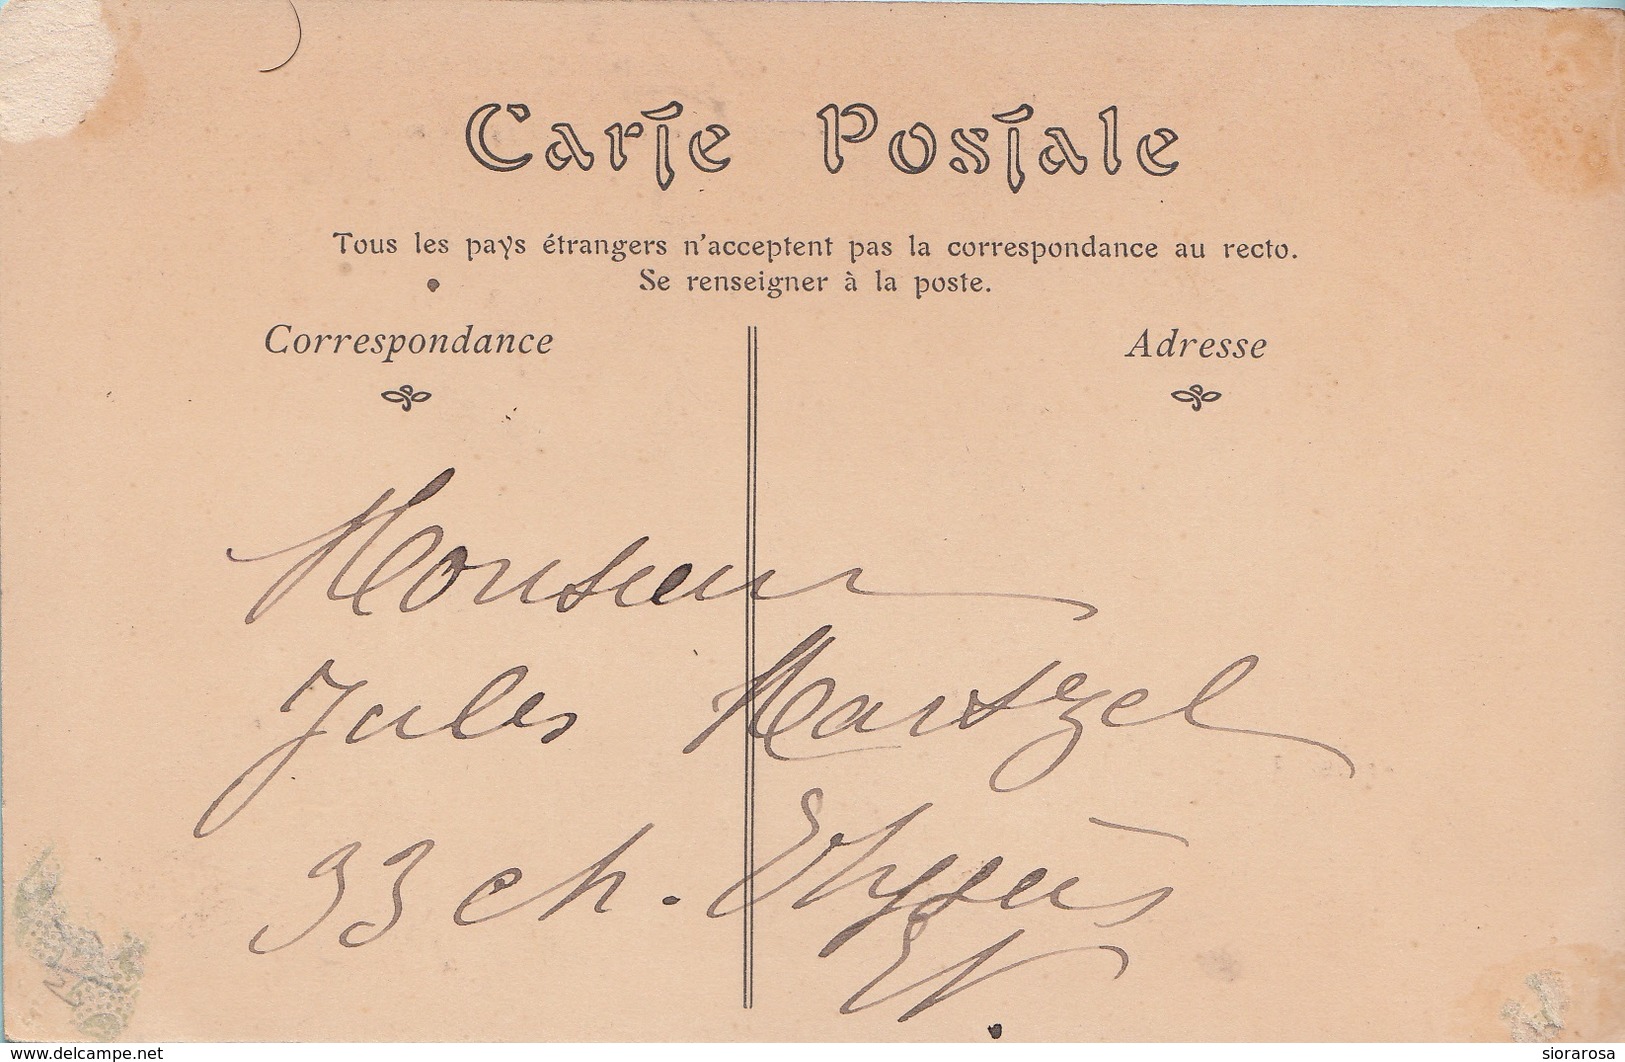 Carte Postale
Tous les pays étrangers n'acceptent pas la correspondance au recto.
Se renseigner à la poste.
Correspondance
Adresse
Monsieur
Jules
33 ch.
EV.
www.delcampe.net
siorarosa